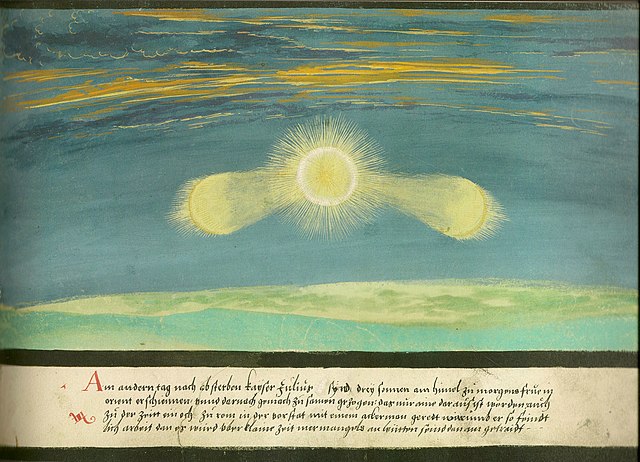 Am andern tag nach absterben kayser Julius synd drey sonnen am himel zu morgens frue in
orient erschinnen vnnd darnach gemach zu samen gezogen: das nür aine daraus ist worden auch
zu der zeitt ein och zu rom in der vorstat mit einem ackerman geredt warumb er so seindt
lich arbeit dan es würd vber klaine zeit mer mangels an leutten sein dan am getraidt